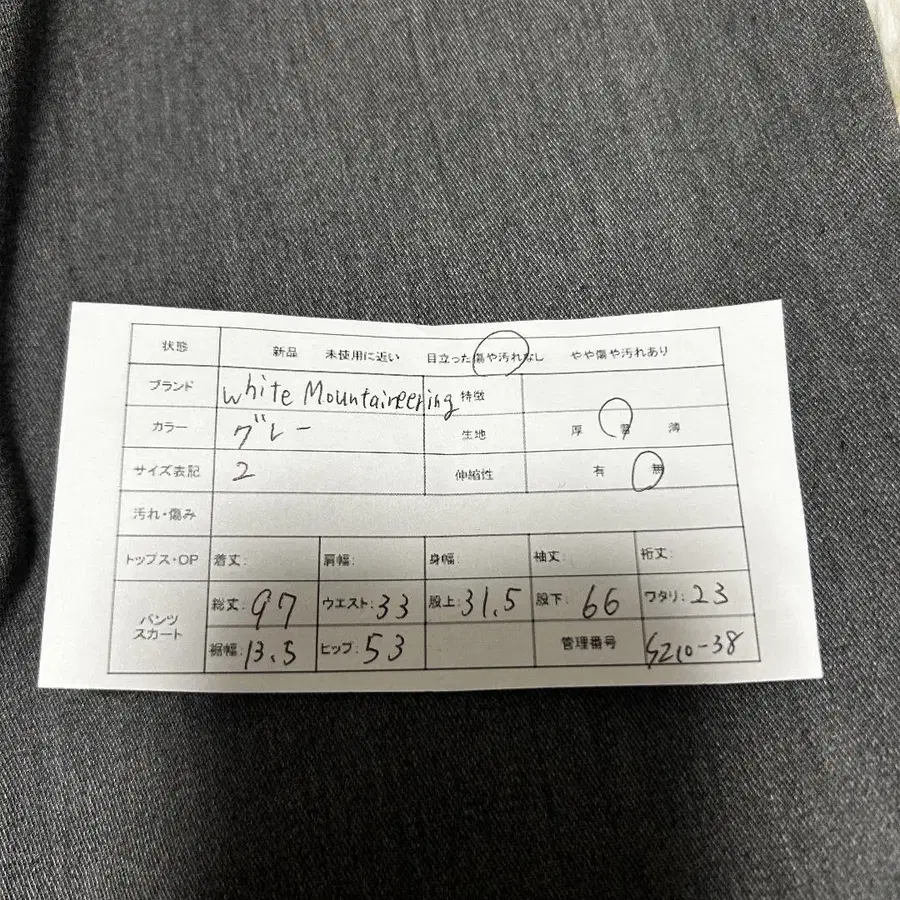 状態 新品 未使用に近い 目立った傷や汚れなし やや傷や汚れあり
ブランド white Mountaineering 特徴
カラー グレー 生地 厚 普 薄
サイズ表記 2 伸縮性 有 無
汚れ・傷み
トップス・OP 着丈: 肩幅: 身幅: 袖丈: 裄丈:
パンツ
スカート
総丈: 97 ウエスト: 33 股上: 31.5 股下: 66 ワタリ: 23
裾幅: 13.5 ヒップ: 53 管理番号 S210-38